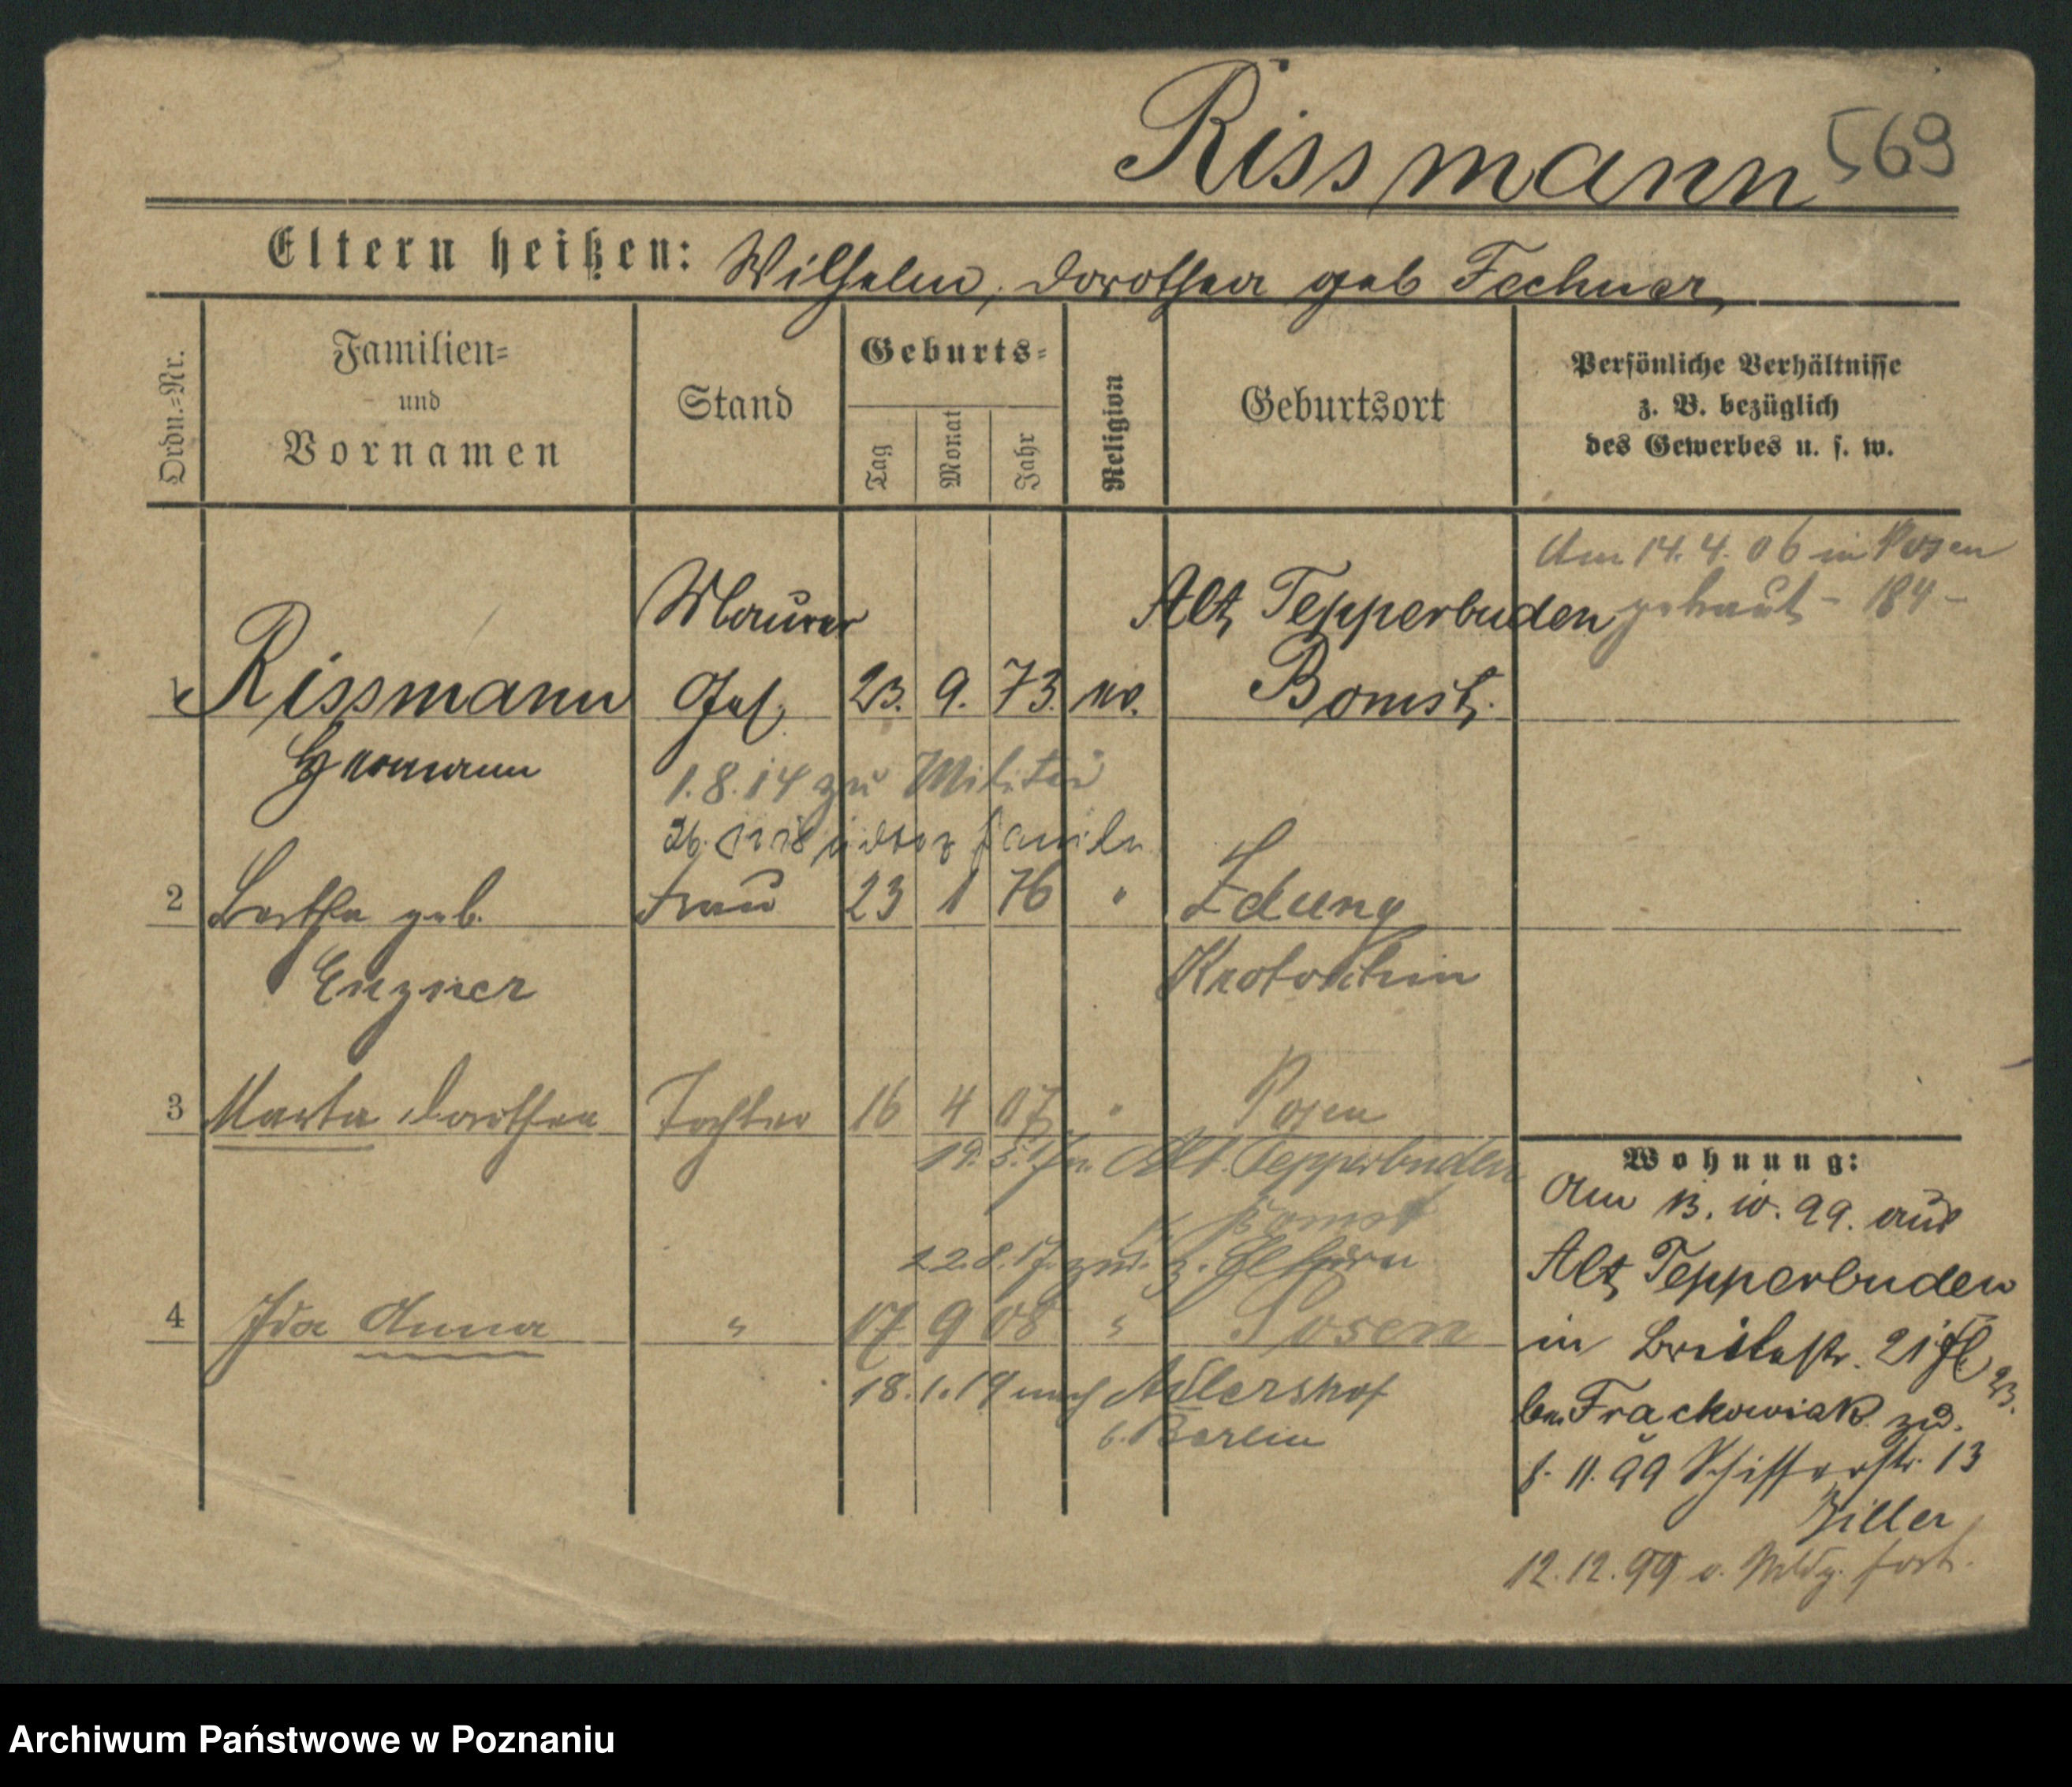 Rissmann 569
Eltern heißen: Wilhelm, Dorothea geb Fechner,
Ordn.=Nr.
Familien=
und
Vornamen
Stand
Geburts=
Tag
Monat
Jahr
Religion
Geburtsort
Persönliche Verhältnisse
z. B. bezüglich
des Gewerbes u. s. w.
Am 14. 4. 06 in Posen
getraut - 184 -
Maurer Alt Tepperbuden
1 Rissmann Ges. 23. 9. 73. ev. Bomst.
Hermann
1. 8. 14 zu Militär
26. Familie
2 Bertha geb. Frau 23 1 76 " Zduny
Enzner Krotoschin
3 Marta Dorothea Tochter 16 4 07 " Posen
19. 5. 17 n. Alt. Tepperbuden
Bomst
22. 8. 17. zur. z. Eltern
4 Ida Anna " 17 9 08 " Posen
18. 1. 19 nach Adlershof
b. Berlin
Wohnung:
Am 13. 10. 99. aus
Alt Tepperbuden
in Breitestr. 21
bei Frackowiak zu.
8. 11. 99 Schifferstr. 13
Ziller
12. 12. 99 o. Mldg. fort.
Archiwum Państwowe w Poznaniu